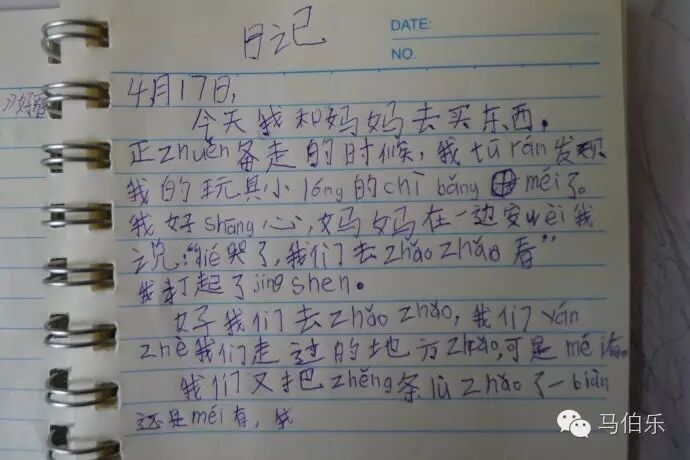 日记
DATE:
NO.
4月17日,
今天我和妈妈去买东西.
正zhuěn备走的时候,我tū rán发现
我的玩具小lóng的chì bǎng méi了。
我好shāng心,妈妈在一边安wèi我
说:"bié哭了,我们去zhǎo zhǎo看"
我打起了jīng shen。
于我们去zhǎo zhǎo,我们yán
zhè我们走过的地方zhǎo,可是méi有。
我们又把zhěng条lù zhǎo了一biàn
还是méi有,我
马伯乐